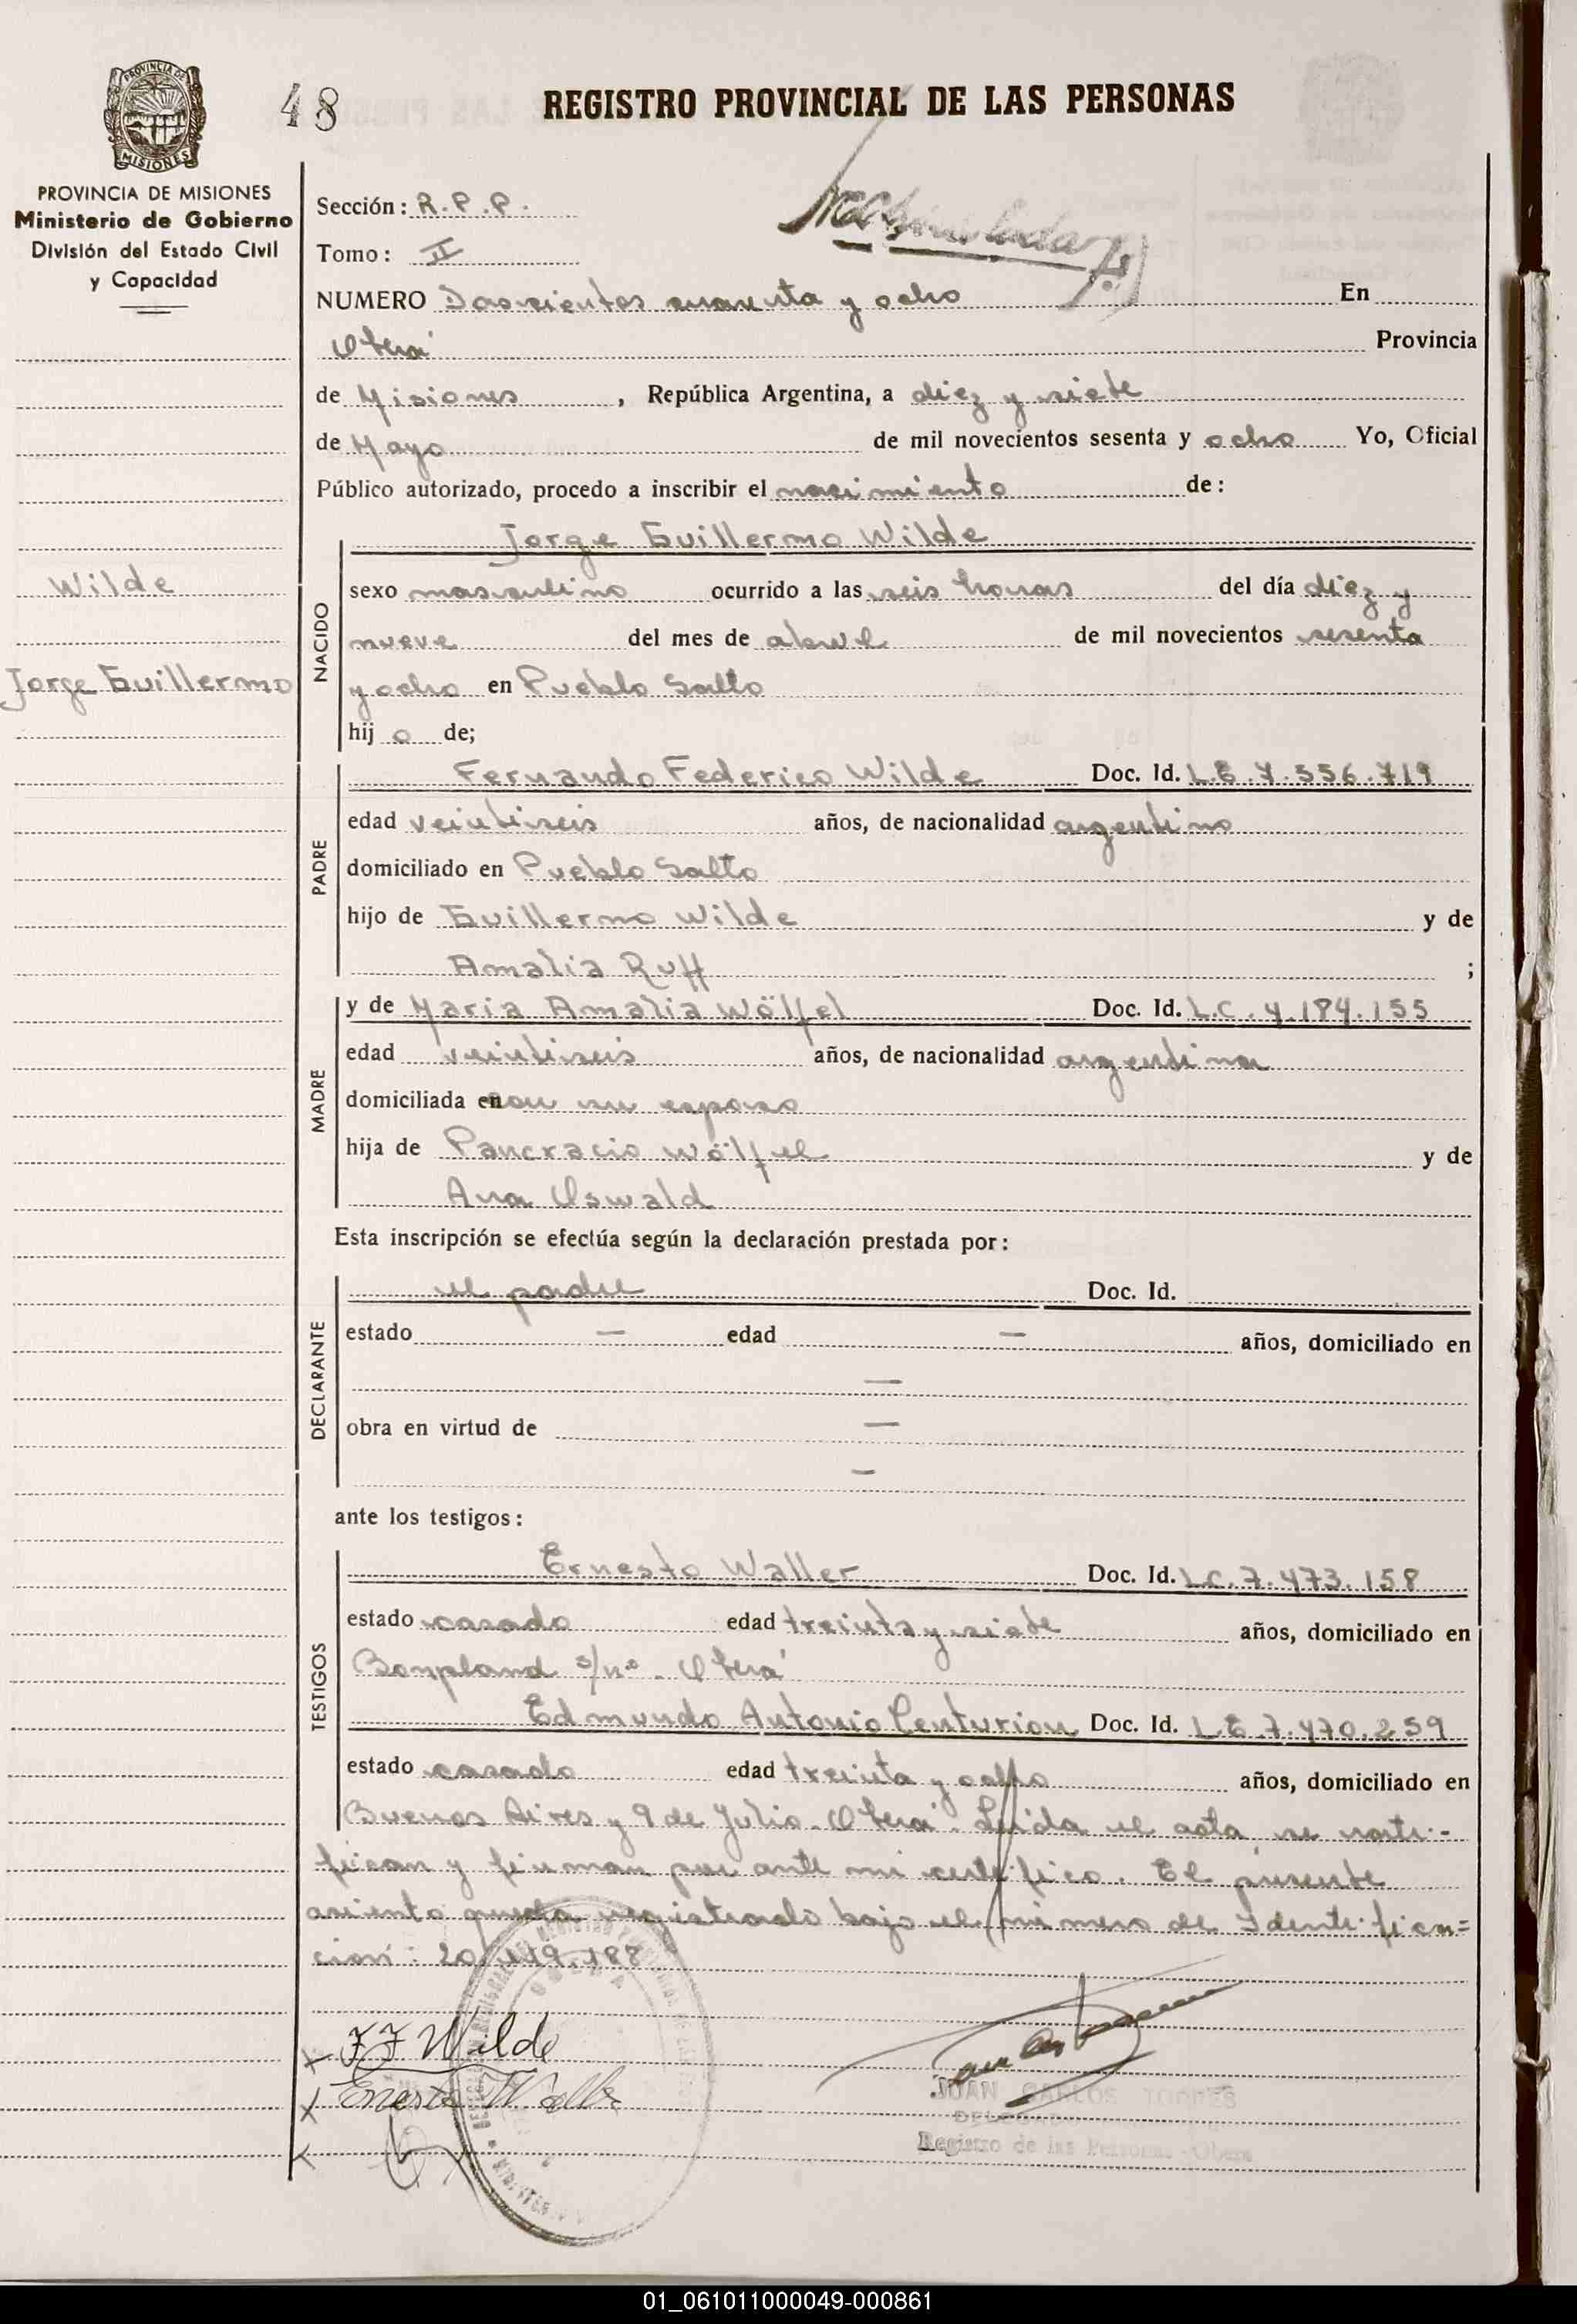 48
REGISTRO PROVINCIAL DE LAS PERSONAS
PROVINCIA DE MISIONES
PROVINCIA DE MISIONES
Ministerio de Gobierno
División del Estado Civil
y Capacidad
Sección: R.P.P.
Tomo: II
NUMERO Doscientos cuarenta y ocho En
Oberá Provincia
de Misiones, República Argentina, a diez y siete
de Mayo de mil novecientos sesenta y ocho Yo, Oficial
Público autorizado, procedo a inscribir el nacimiento de:
Wilde
Jorge Guillermo
NACIDO
Jorge Guillermo Wilde
sexo masculino ocurrido a las seis horas del día diez y
nueve del mes de abril de mil novecientos sesenta
y ocho en Pueblo Salto
hij o de;
PADRE
Fernando Federico Wilde Doc. Id. L.E. 7.556.719
edad veintiseis años, de nacionalidad argentino
domiciliado en Pueblo Salto
hijo de Guillermo Wilde y de
Amalia Ruff ;
MADRE
y de Maria Amalia Wölfel Doc. Id. L.C. 4.184.155
edad veintiseis años, de nacionalidad argentina
domiciliada en con su esposo
hija de Pancracio Wölfel y de
Ana Oswald
Esta inscripción se efectúa según la declaración prestada por:
DECLARANTE
el padre Doc. Id.
estado — edad — años, domiciliado en
—
obra en virtud de —
—
ante los testigos:
TESTIGOS
Ernesto Waller Doc. Id. L.C. 7.473.158
estado casado edad treinta y siete años, domiciliado en
Bonpland s/nº - Oberá
Edmundo Antonio Centurion Doc. Id. L.E. 7.470.259
estado casado edad treinta y ocho años, domiciliado en
Buenos Aires y 9 de Julio - Oberá. Leida el acta, se rati-
fican y firman por ante mi certifico. El presente
asiento queda registrado bajo el número de Identifica=
ción: 20.119.188
F F Wilde
Ernesto Waller
JUAN CARLOS TORRES
DELEGADO
Registro de las Personas Obera
01_061011000049-000861